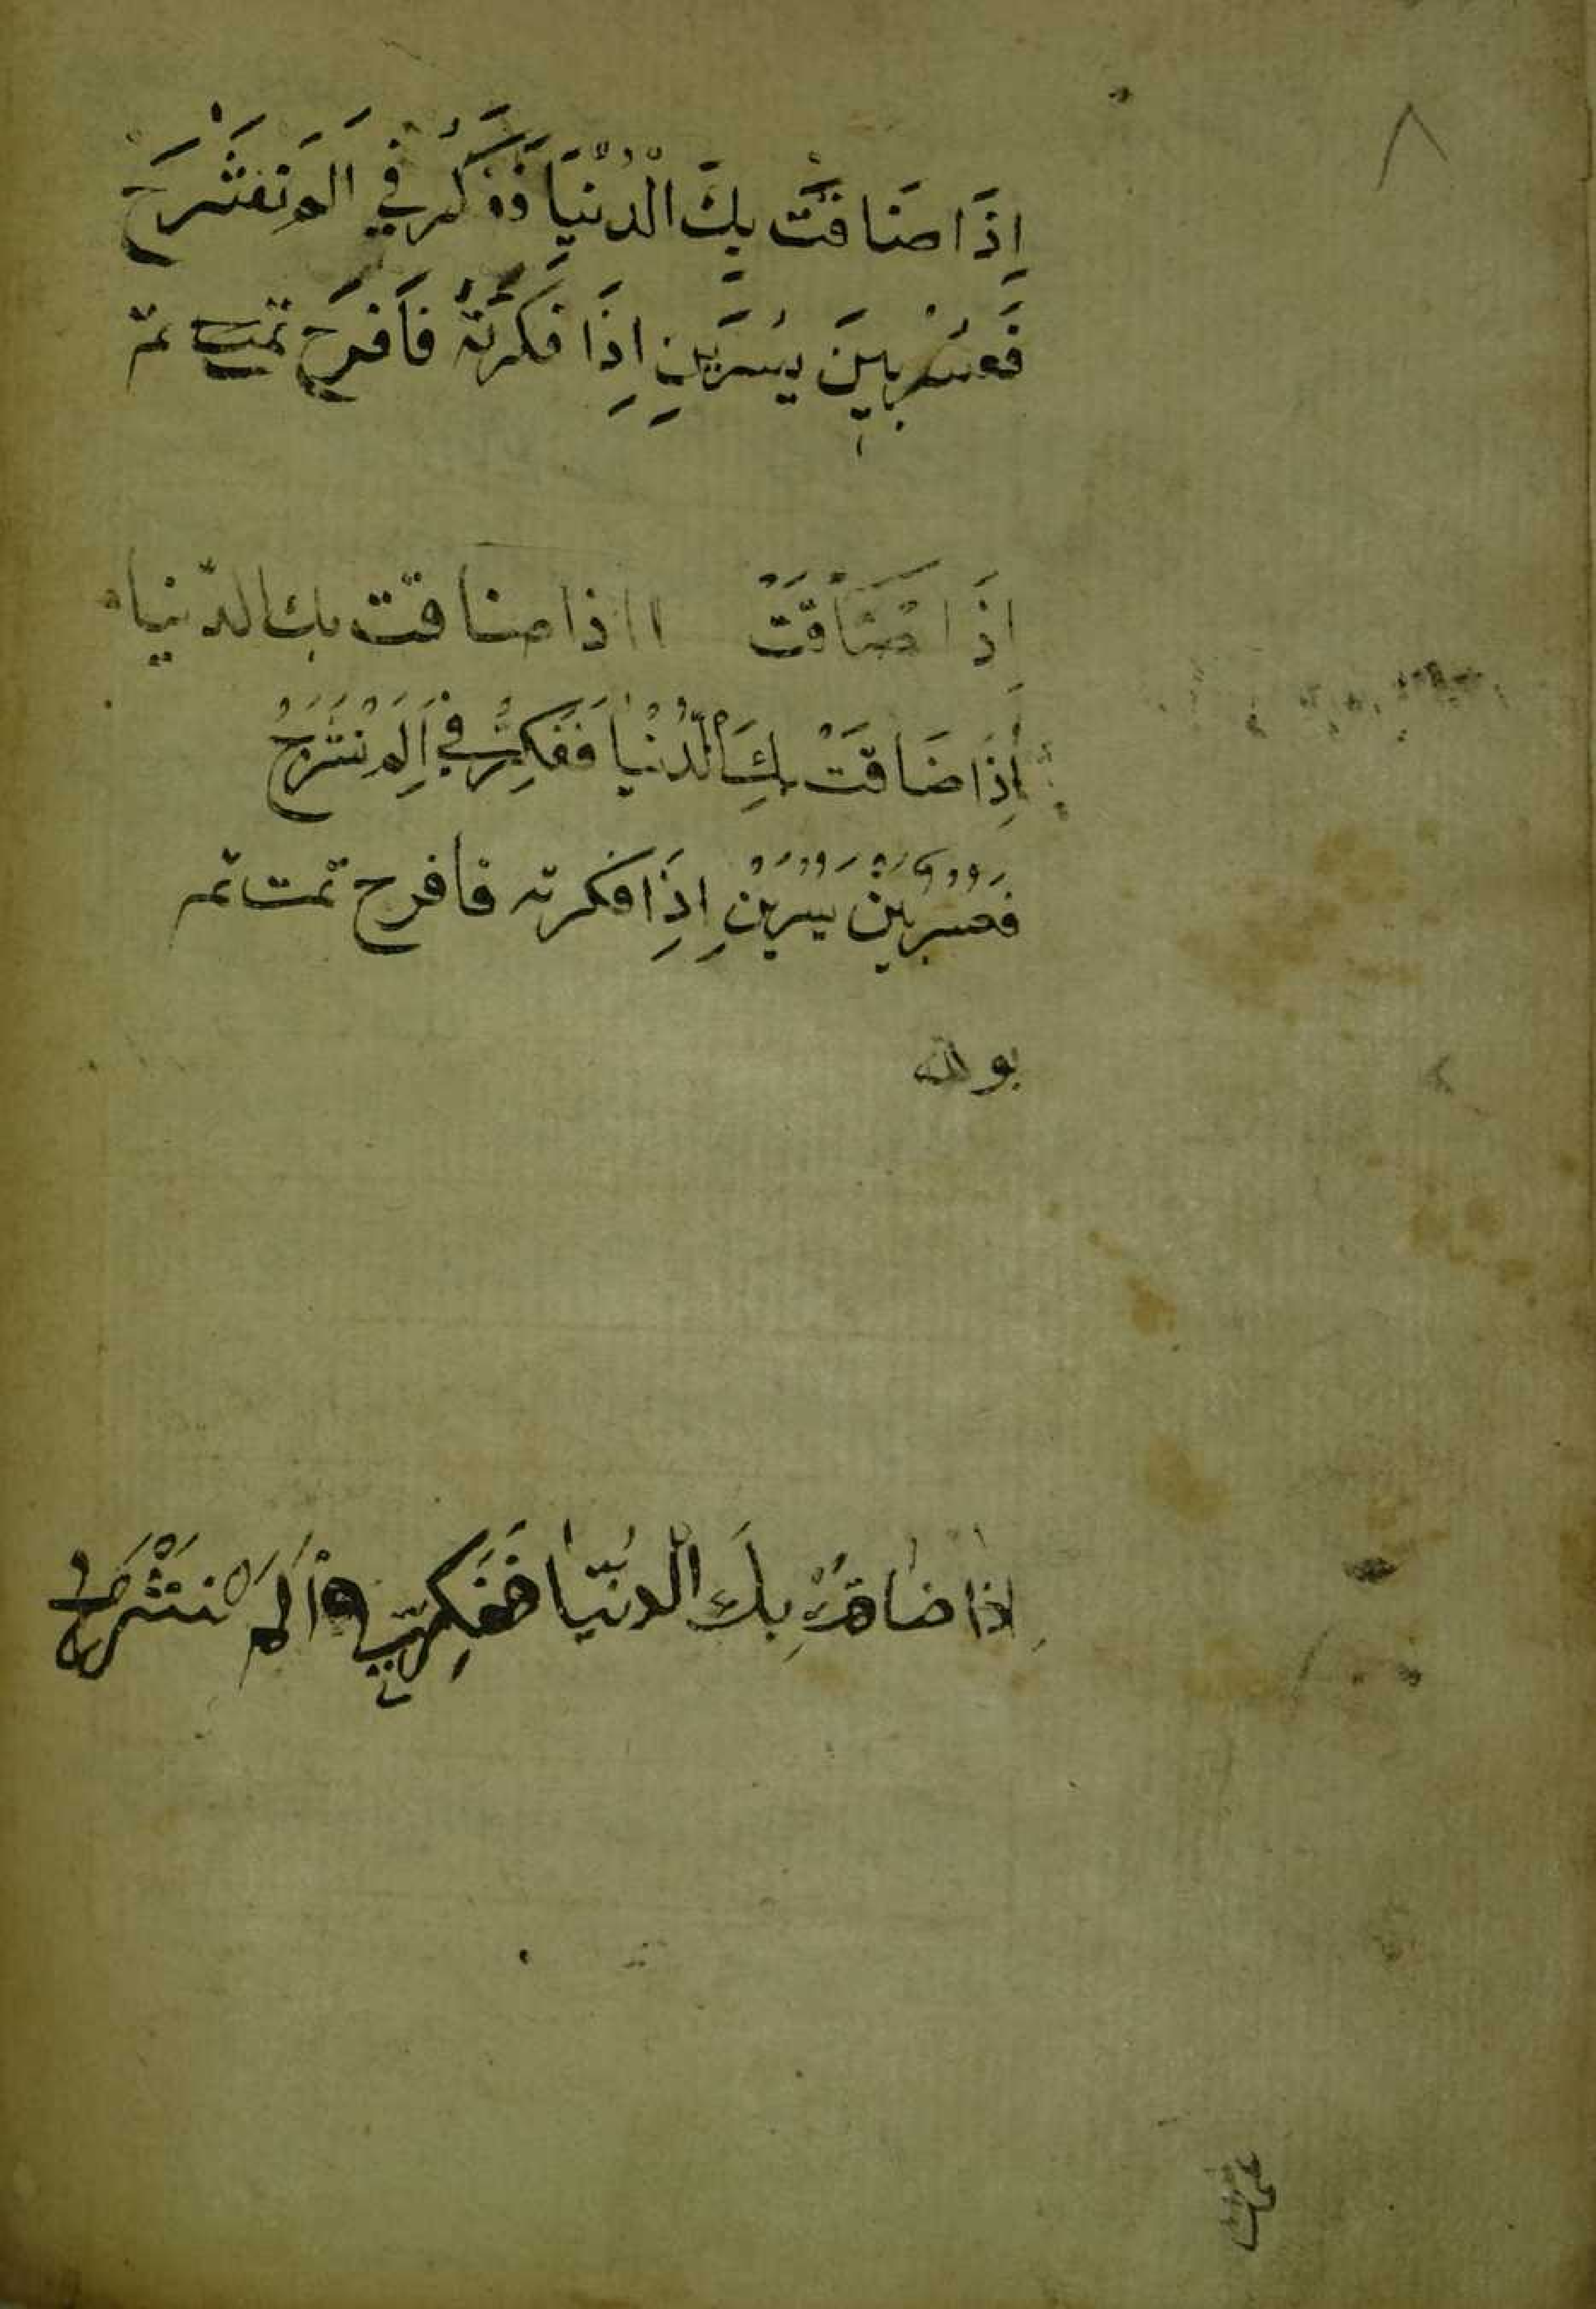 ٨
اِذَا ضَاقَتْ بِكَ الْدُنْيَا فَفَكِّرْ في المَ نَفشْرَحَ
فَعُسْرٍ بَينَ يُسْرَيْنِ اِذَا فَكَرْتَهُ فَافرَح تمت تم
اِذَا ضَاقَتْ اا اذا ضاقت بك الدّنيا
اِذَا ضَاقَتْ بِكَ الدُّنْيَا فَفَكِرْ في اَلَمْ نَشْرَحْ
فعسر بين يسرين اِذَا فكرته فافرح تمت تمه
بو
اذا ضاقت بكَ الدنيا ففكر في اَلَمْ ننشرح